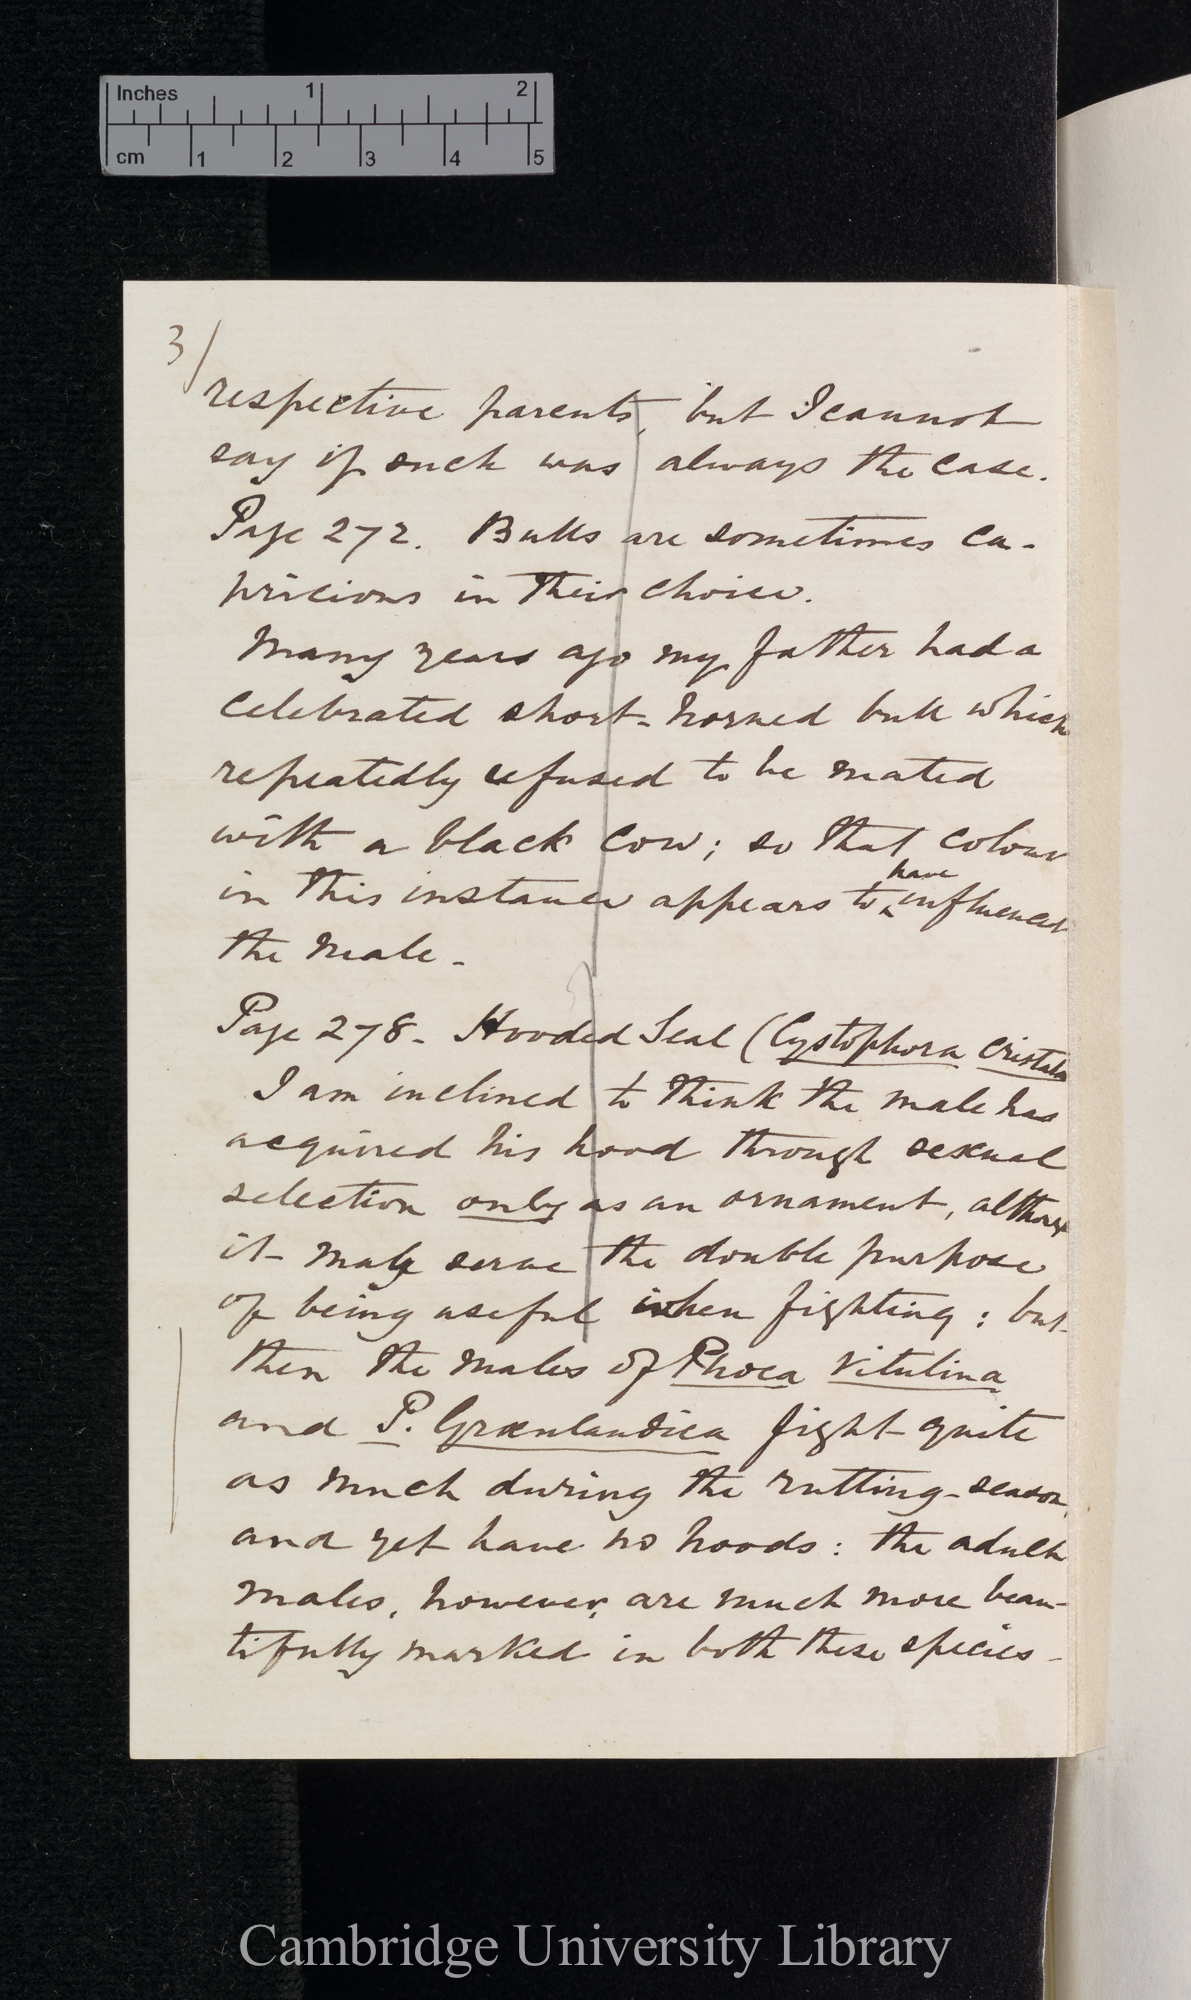 Inches 1 2
cm 1 2 3 4 5
3/
respective parents, but I cannot
say if such was always the case.
Page 272. Bulls are sometimes ca-
pricious in their choice.
Many years ago my father had a
celebrated short-horned bull which
repeatedly refused to be mated
with a black cow; so that colour
in this instance appears to ^have influenced
the male.
Page 278. Hooded Seal (Cystophora cristata
I am inclined to think the male has
acquired his hood through sexual
selection only as an ornament, although
it may serve the double purpose
of being useful when fighting: but
then the males of Phoca vitulina
and P. Grœnlandica fight quite
as much during the rutting-season,
and yet have no hoods: the adult
males, however, are much more beau-
tifully marked in both these species-
Cambridge University Library